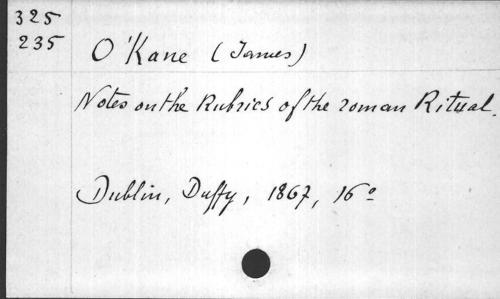 325
235
O'Kane (James)
Notes on the Rubrics of the roman Ritual.
Dublin, Duffy, 1867, 16º